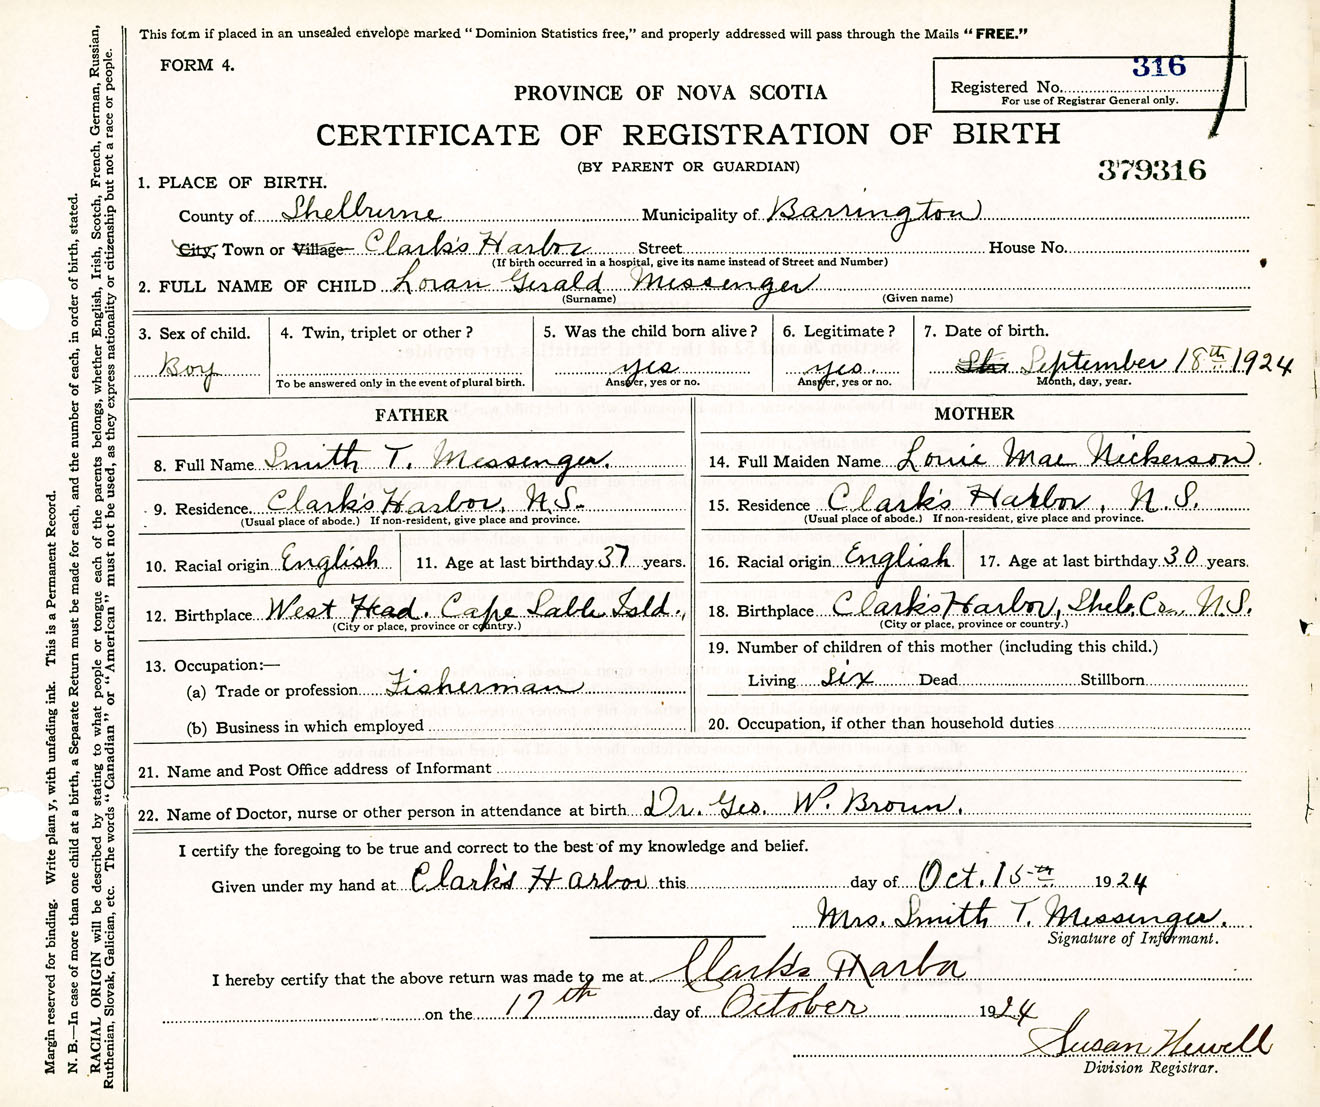 This form if placed in an unsealed envelope marked "Dominion Statistics free," and properly addressed will pass through the Mails "FREE."
FORM 4.
316
Registered No.
For use of Registrar General only.
PROVINCE OF NOVA SCOTIA
CERTIFICATE OF REGISTRATION OF BIRTH
(BY PARENT OR GUARDIAN)
379316
1. PLACE OF BIRTH.
County of Shelburne Municipality of Barrington
City, Town or Village Clark's Harbor Street House No.
(If birth occurred in a hospital, give its name instead of Street and Number)
2. FULL NAME OF CHILD Loran Gerald Messenger
(Surname) (Given name)
3. Sex of child. 4. Twin, triplet or other? 5. Was the child born alive? 6. Legitimate? 7. Date of birth.
Boy yes yes. September 18th 1924
To be answered only in the event of plural birth. Answer, yes or no. Answer, yes or no. Month, day, year.
FATHER MOTHER
8. Full Name Smith T. Messenger. 14. Full Maiden Name Louie Mae Nickerson.
9. Residence. Clark's Harbor, N.S. 15. Residence Clark's Harbor, N.S.
(Usual place of abode.) If non-resident, give place and province. (Usual place of abode.) If non-resident, give place and province.
10. Racial origin English 11. Age at last birthday 37 years. 16. Racial origin English 17. Age at last birthday 30 years.
12. Birthplace West Head. Cape Sable Isld., 18. Birthplace Clark's Harbor, Shelb. Co. N.S.
(City or place, province or country.) (City or place, province or country.)
13. Occupation:— 19. Number of children of this mother (including this child.)
(a) Trade or profession Fisherman Living six Dead Stillborn
(b) Business in which employed 20. Occupation, if other than household duties
21. Name and Post Office address of Informant
22. Name of Doctor, nurse or other person in attendance at birth Dr. Geo. W. Broun.
I certify the foregoing to be true and correct to the best of my knowledge and belief.
Given under my hand at Clark's Harbor this day of Oct. 15th 1924
Mrs. Smith T. Messenger.
Signature of Informant.
I hereby certify that the above return was made to me at Clark's Harbor
on the 17th day of October 1924
Susan Newell
Division Registrar.
Margin reserved for binding. Write plainly, with unfading ink. This is a Permanent Record.
N. B.—In case of more than one child at a birth, a Separate Return must be made for each, and the number of each, in order of birth, stated.
RACIAL ORIGIN will be described by stating to what people or tongue each of the parents belongs, whether English, Irish, Scotch, French, German, Russian,
Ruthenian, Slovak, Galician, etc. The words "Canadian" or "American" must not be used, as they express nationality or citizenship but not a race or people.